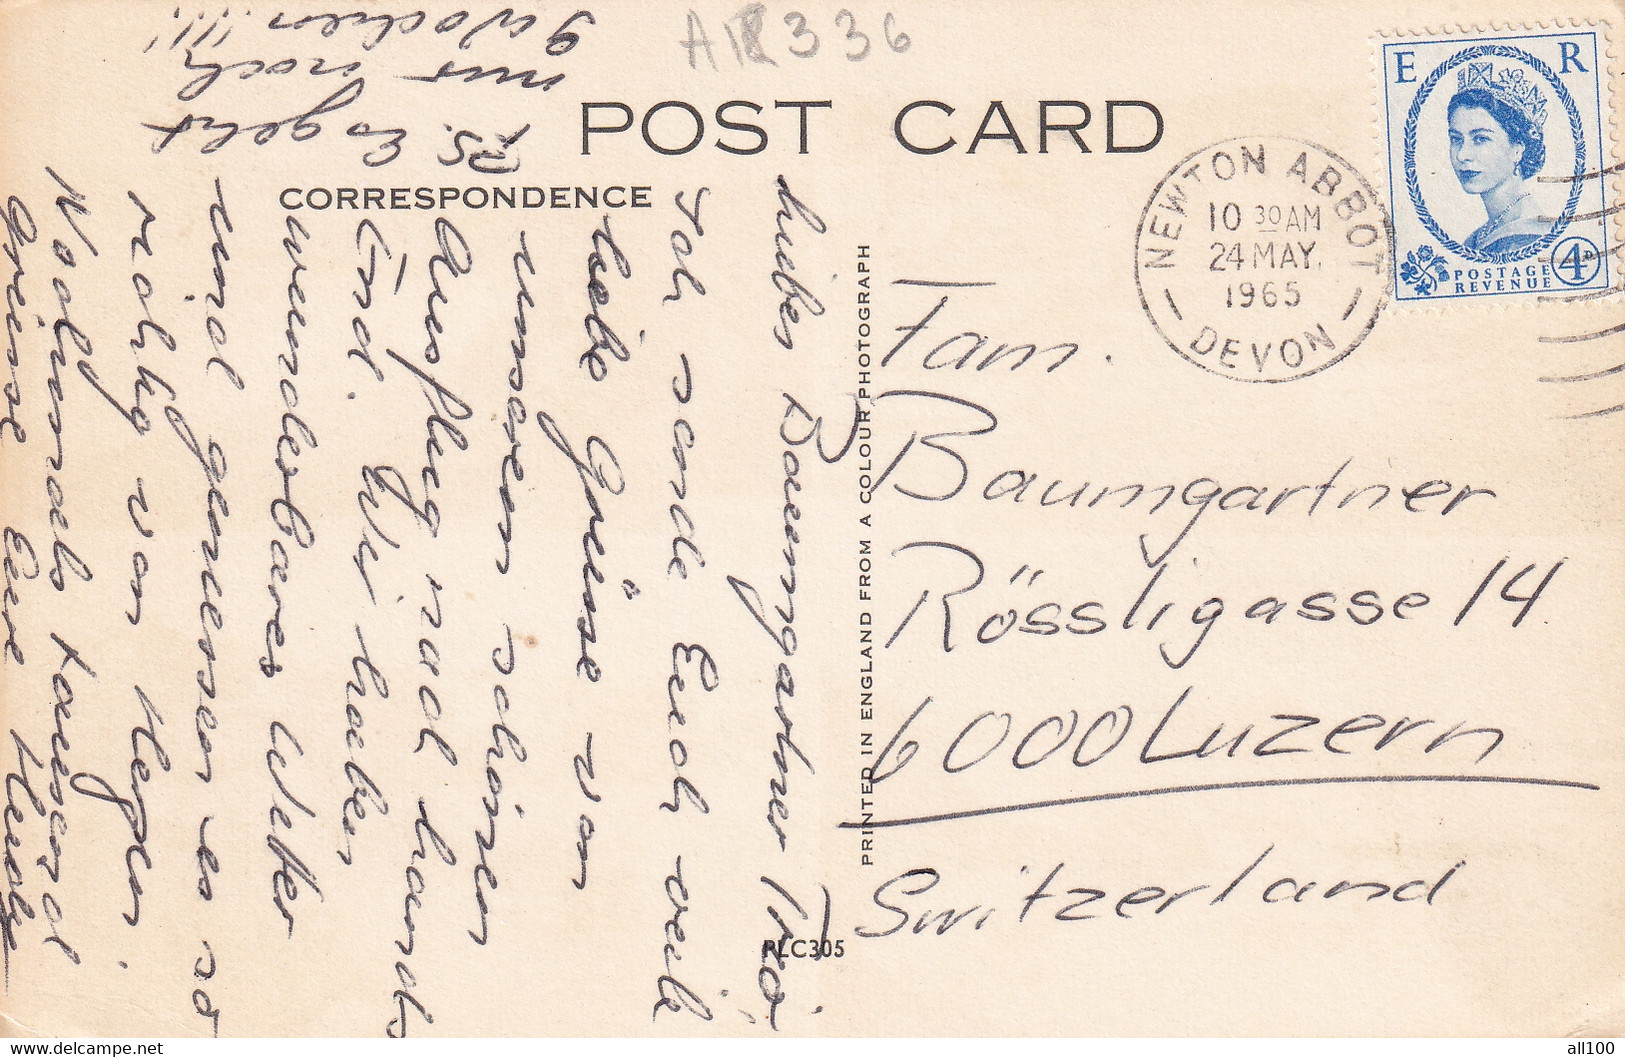 AK 336
POST CARD
CORRESPONDENCE
E R
POSTAGE
REVENUE
4D
NEWTON ABBOT
10 30 AM
24 MAY.
1965
DEVON
liebes Baumgartner Trio
Ich sende Euch viele
liebe Grüsse von
unserem schönen
Ausflug nach
End. Wir haben
wunderbares Wetter
und geniessen es so
richtig von Herzen
Nochmals tausend
Grüsse Eure
PS. Es geht
nur noch
9 Wochen!!!!
PRINTED IN ENGLAND FROM A COLOUR PHOTOGRAPH
PLC305
Fam.
Baumgartner
Rössligasse 14
6000 Luzern
Switzerland
all100